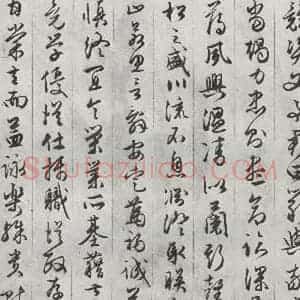 競資父事君曰嚴與敬
當竭力忠則盡命臨深
薄夙興溫凊似蘭斯馨
松之盛川流不息淵澄取映
止若思言辭安定篤初誠
慎終宜令榮業所基籍甚
竟學優登仕攝職從政存
甘棠去而益詠樂殊貴賤